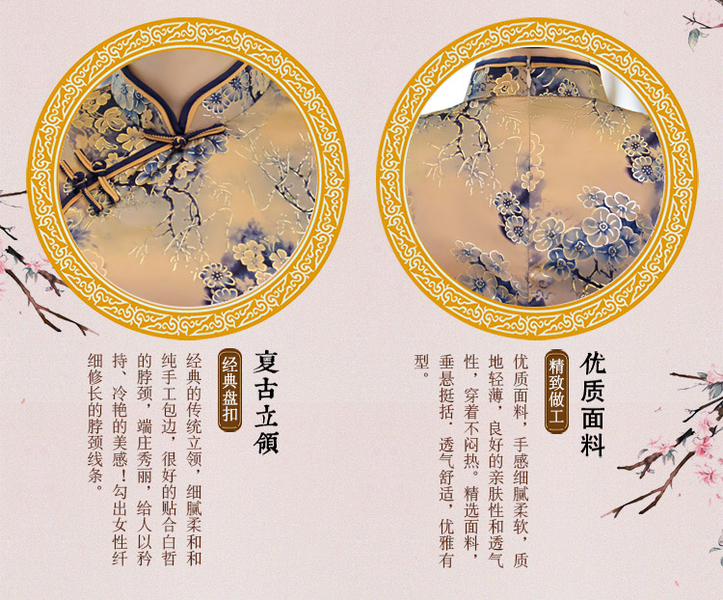 复古立領
经典盘扣
经典的传统立领，细腻柔和和
纯手工包边，很好的贴合白皙
的脖颈，端庄秀丽，给人以矜
持、冷艳的美感！勾出女性纤
细修长的脖颈线条。
优质面料
精致做工
优质面料，手感细腻柔软，质
地轻薄，良好的亲肤性和透气
性，穿着不闷热。精选面料，
垂悬挺括．透气舒适，优雅有
型。